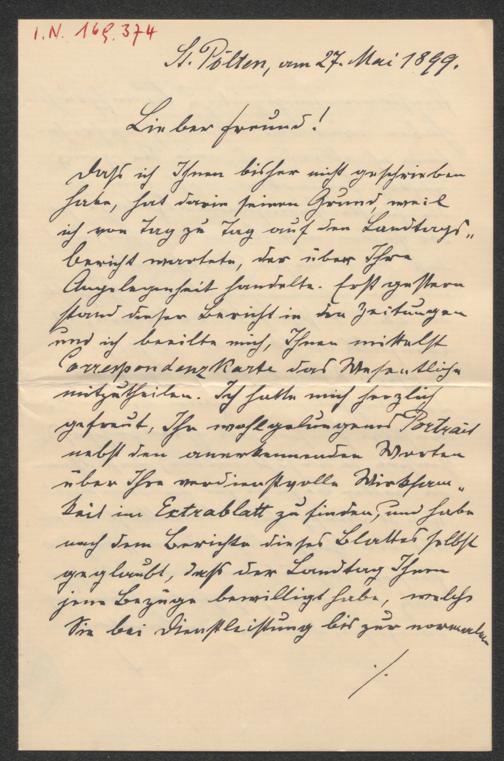 I.N. 169.374
St. Pölten, am 27. Mai 1899.
Lieber Freund!
Daß ich Ihnen bisher nicht geschrieben
habe, hat darin seinen Grund, weil
ich von Tag zu Tag auf den Landtags„
bericht wartete, der über Ihre
Angelegenheit handelte. Erst gestern
stand dieser Bericht in den Zeitungen
und ich beeilte mich, Ihnen mittelst
Correspondenzkarte das Wesentliche
mitzutheilen. Ich hatte mich herzlich
gefreut, Ihr wohlgelungenes Porträt
nebst den anerkennenden Worten
über Ihre verdienstvolle Wirksam„
keit im Extrablatt zu finden, und habe
nach dem Berichte dieses Blattes selbst
geglaubt, daß der Landtag Ihnen
jene Bezüge bewilligt habe, welche
Sie bei Dienstleistung bis zur normalen
./.